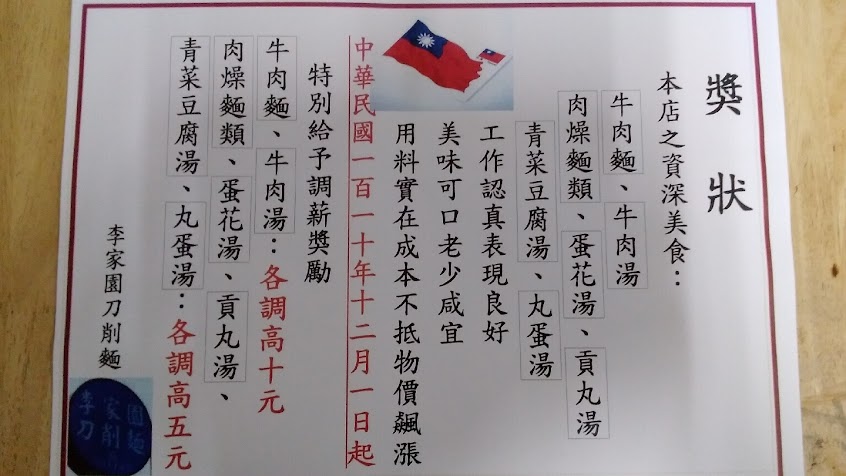 獎狀
本店之資深美食：
牛肉麵、牛肉湯
肉燥麵類、蛋花湯、貢丸湯
青菜豆腐湯、丸蛋湯
工作認真表現良好
美味可口老少咸宜
用料實在成本不抵物價飆漲
中華民國一百一十年十二月一日起
特別給予調薪獎勵
牛肉麵、牛肉湯：各調高十元
肉燥麵類、蛋花湯、貢丸湯、
青菜豆腐湯、丸蛋湯：各調高五元
李家園刀削麵
李家園
刀削麵